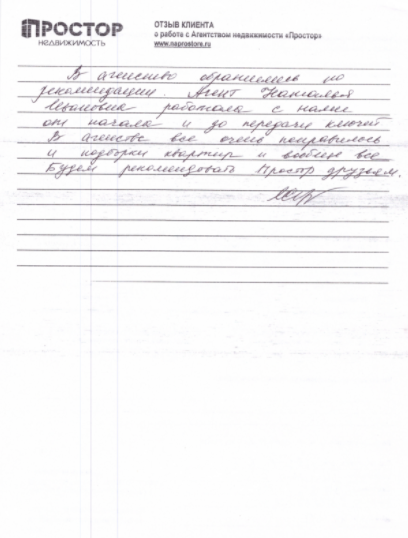 ПРОСТОР
НЕДВИЖИМОСТЬ
ОТЗЫВ КЛИЕНТА
о работе с Агентством недвижимости «Простор»
www.naprostore.ru
В агенство обратились по
рекомендации. Агент Наталья
Ивановна работала с нами
от начала и до передачи ключей
В агенстве все очень понравилось
и подборки квартир и вообще все
Будем рекомендовать Простор друзьям.